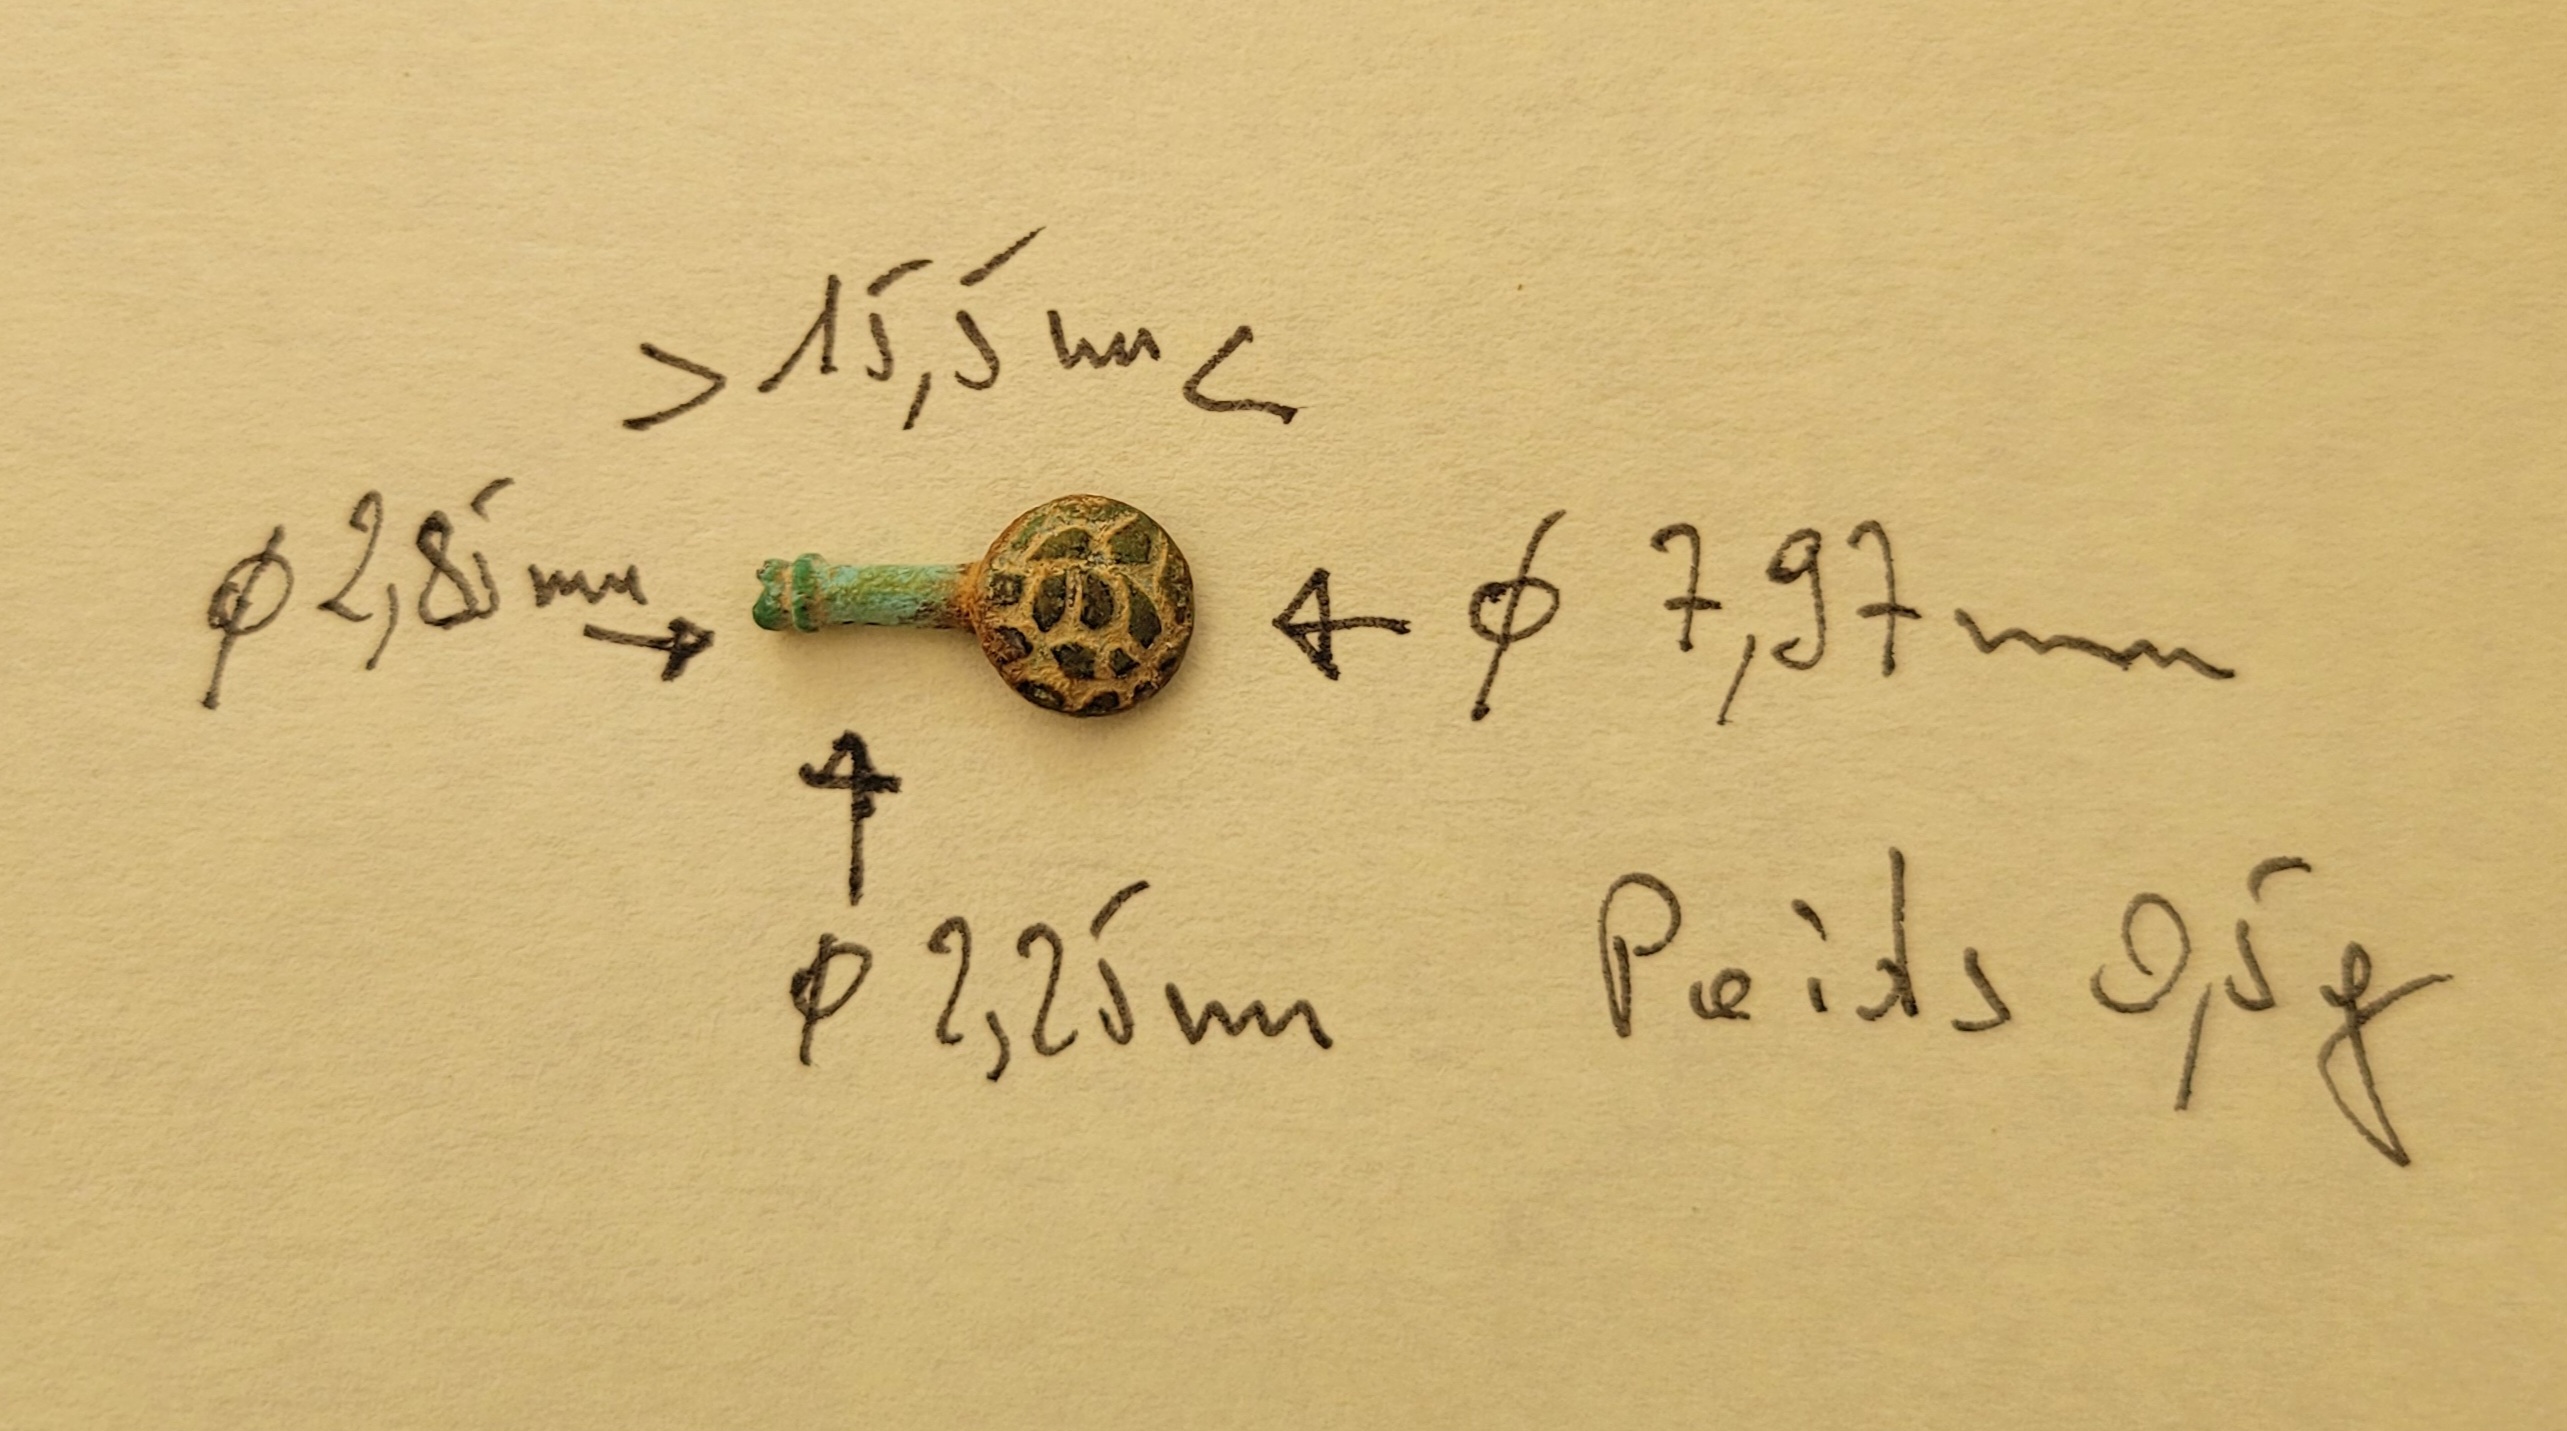 > 15,5 mm <
ϕ 2,85 mm
ϕ 7,97 mm
ϕ 2,25 mm
Poids 0,5 g